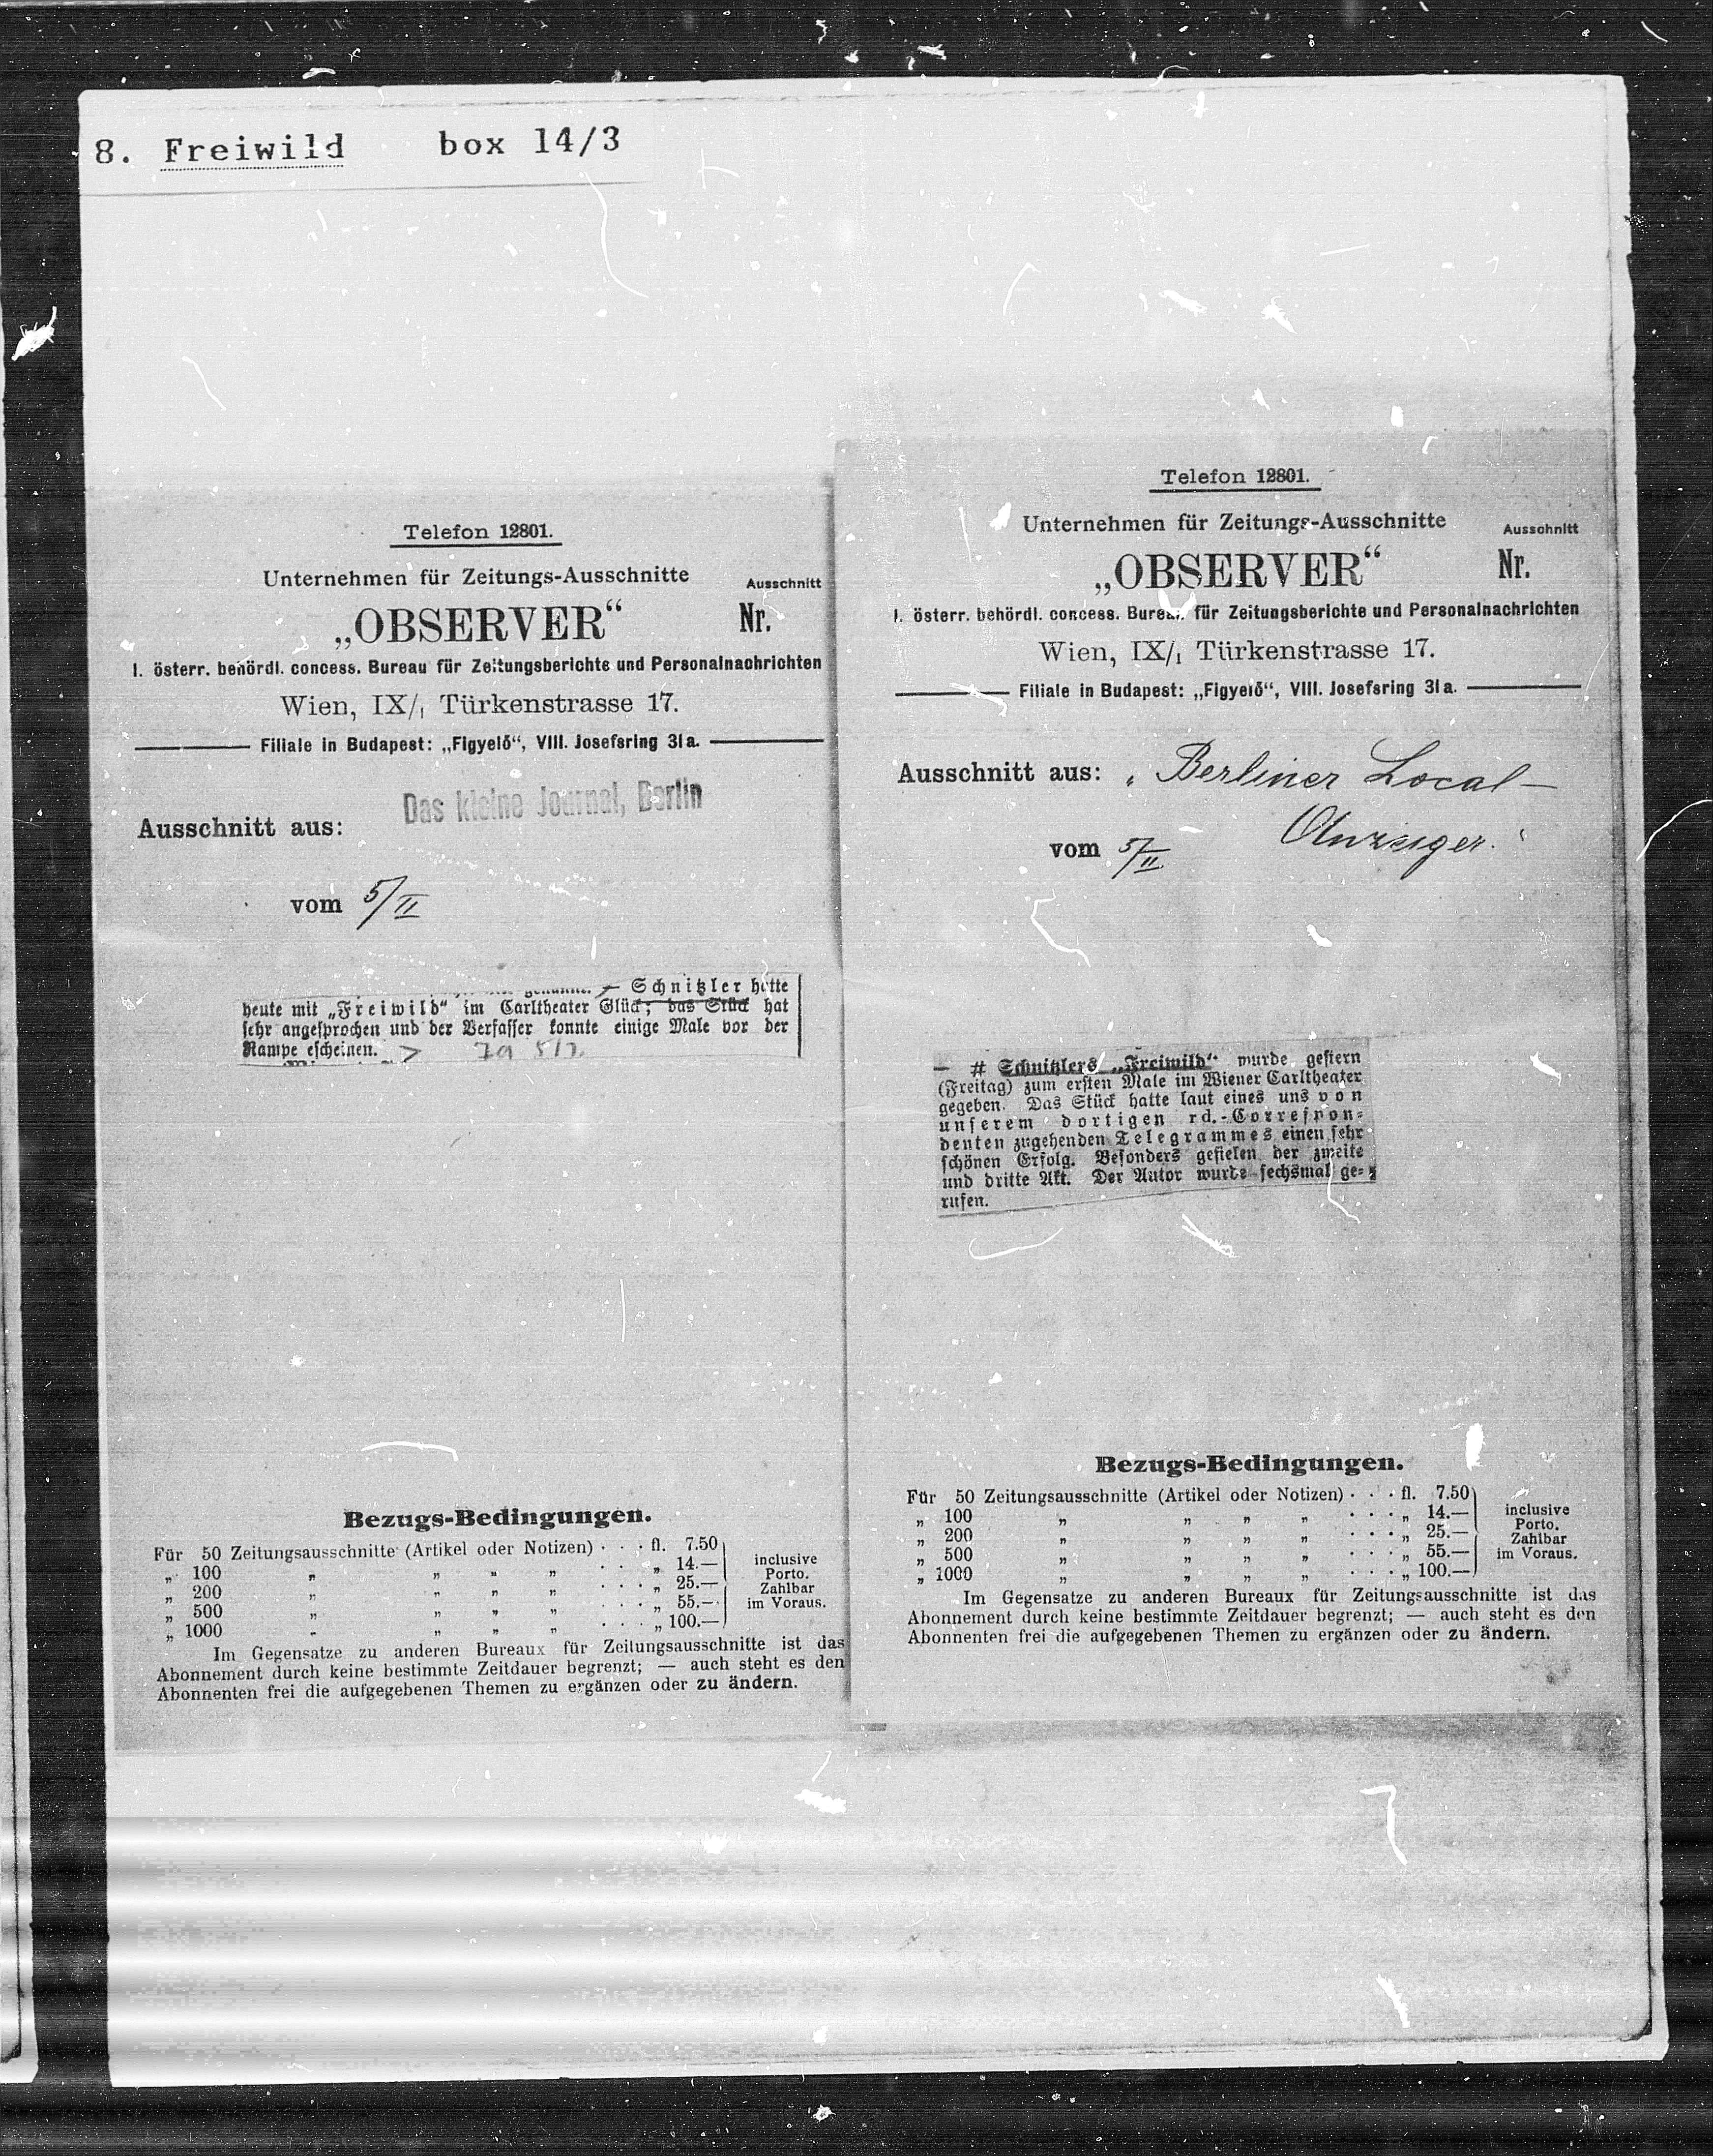 8. Freiwild box 14/3
Telefon 12801.
Unternehmen für Zeitungs-Ausschnitte
Ausschnitt
„OBSERVER“
Nr.
I. österr. behördl. concess. Bureau für Zeitungsberichte und Personalnachrichten
Wien, IX/1 Türkenstrasse 17.
Filiale in Budapest: „Figyelő“, VIII. Josefsring 31a.
Das kleine Journal, Berlin
Ausschnitt aus:
vom 5/II
Schnitzler hatte
heute mit „Freiwild“ im Carltheater Glück; das Stück hat
sehr angesprochen und der Verfasser konnte einige Male vor der
Rampe escheinen.
Bezugs-Bedingungen.
Für 50 Zeitungsausschnitte (Artikel oder Notizen) . . . fl. 7.50
„ 100 „ „ „ „ . . . „ 14.—
„ 200 „ „ „ „ . . . „ 25.—
„ 500 „ „ „ „ . . . „ 55.—
„ 1000 „ „ „ „ . . . „ 100.—
inclusive
Porto.
Zahlbar
im Voraus.
Im Gegensatze zu anderen Bureaux für Zeitungsausschnitte ist das
Abonnement durch keine bestimmte Zeitdauer begrenzt; — auch steht es den
Abonnenten frei die aufgegebenen Themen zu ergänzen oder zu ändern.
Telefon 12801.
Unternehmen für Zeitungs-Ausschnitte
Ausschnitt
„OBSERVER“
Nr.
I. österr. behördl. concess. Bureau für Zeitungsberichte und Personalnachrichten
Wien, IX/1 Türkenstrasse 17.
Filiale in Budapest: „Figyelő“, VIII. Josefsring 31a.
Ausschnitt aus: „Berliner Local-
Anzeiger.“
vom 5/II.
— # Schnitzlers „Freiwild“ wurde gestern
(Freitag) zum ersten Male im Wiener Carltheater
gegeben. Das Stück hatte laut eines uns von
unserem dortigen rd.-Correspon-
denten zugehenden Telegrammes einen sehr
schönen Erfolg. Besonders gefielen der zweite
und dritte Akt. Der Autor wurde sechsmal ge-
rufen.
Bezugs-Bedingungen.
Für 50 Zeitungsausschnitte (Artikel oder Notizen) . . . fl. 7.50
„ 100 „ „ „ „ . . . „ 14.—
„ 200 „ „ „ „ . . . „ 25.—
„ 500 „ „ „ „ . . . „ 55.—
„ 1000 „ „ „ „ . . . „ 100.—
inclusive
Porto.
Zahlbar
im Voraus.
Im Gegensatze zu anderen Bureaux für Zeitungsausschnitte ist das
Abonnement durch keine bestimmte Zeitdauer begrenzt; — auch steht es den
Abonnenten frei die aufgegebenen Themen zu ergänzen oder zu ändern.